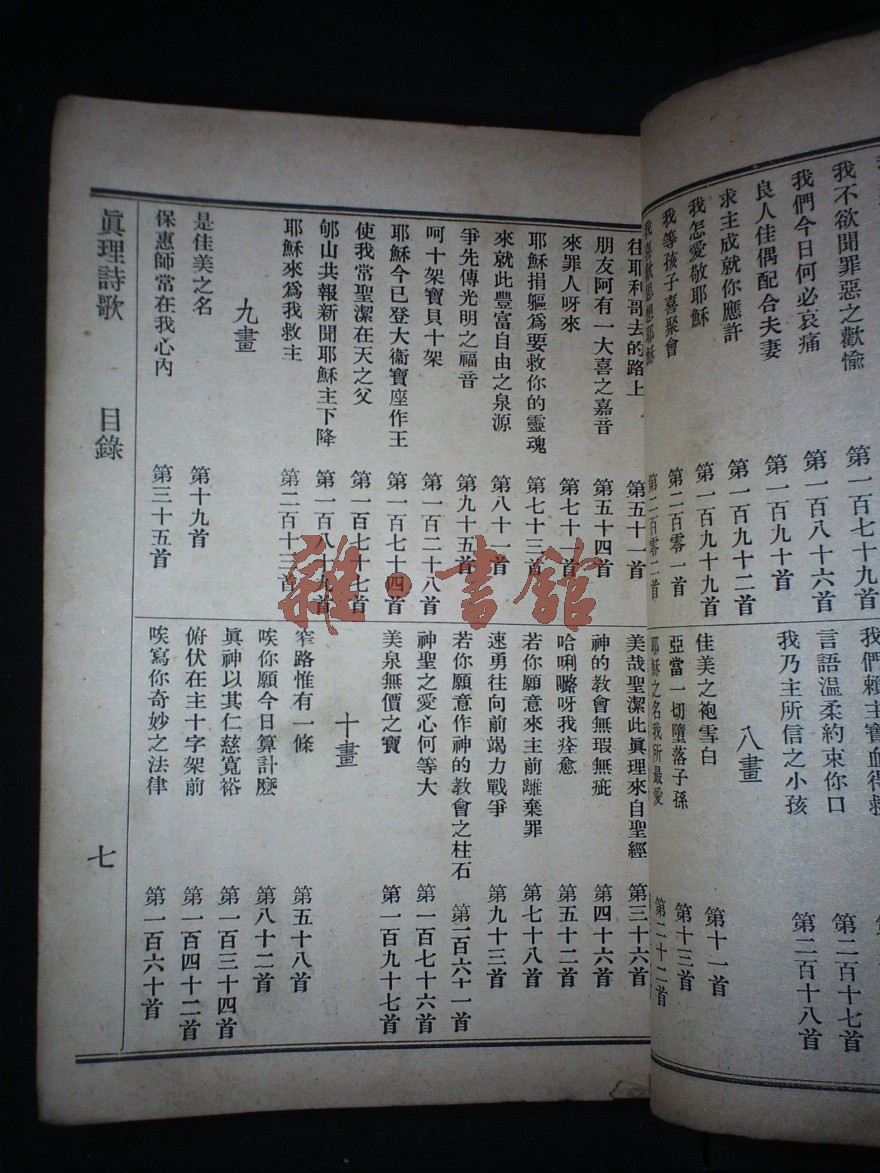 我不欲聞罪惡之歡愉 第一百七十九首
我們今日何必哀痛 第一百八十六首
良人佳偶配合夫妻 第一百九十首
求主成就你應許 第一百九十二首
我怎愛敬耶穌 第一百九十九首
我等孩子喜聚會 第二百零一首
我喜歡思想耶穌 第二百零二首
我們賴主寶血得救 第二百十七首
言語溫柔約束你口
我乃主所信之小孩 第二百十八首
八畫
佳美之袍雪白 第十一首
亞當一切墮落子孫 第十三首
耶穌之名我所最愛 第二十二首
往耶利哥去的路上 第五十一首
朋友阿有一大喜之嘉音 第五十四首
來罪人呀來 第七十一首
耶穌捐軀爲要救你的靈魂 第七十三首
來就此豐富自由之泉源 第八十一首
爭先傳光明之福音 第九十五首
呵十架寶貝十架 第一百二十八首
耶穌今已登大衞寶座作王 第一百七十四首
使我常聖潔在天之父 第一百七十七首
郇山共報新聞耶穌主下降 第一百八十九首
耶穌來爲我救主 第二百十三首
九畫
是佳美之名 第十九首
保惠師常在我心內 第三十五首
美哉聖潔此眞理來自聖經 第三十六首
神的教會無瑕無疵 第四十六首
哈唎嚕呀我痊愈 第五十二首
若你願意來主前離棄罪 第七十八首
速勇往向前竭力戰爭 第九十三首
若你願意作神的教會之柱石 第一百六十一首
神聖之愛心何等大 第一百七十六首
美泉無價之寶 第一百九十七首
十畫
窄路惟有一條 第五十八首
唉你願今日算計麼 第八十二首
眞神以其仁慈寬裕 第一百三十四首
俯伏在主十字架前 第一百四十二首
唉寫你奇妙之法律 第一百六十首
眞理詩歌 目錄 七
雜·書館